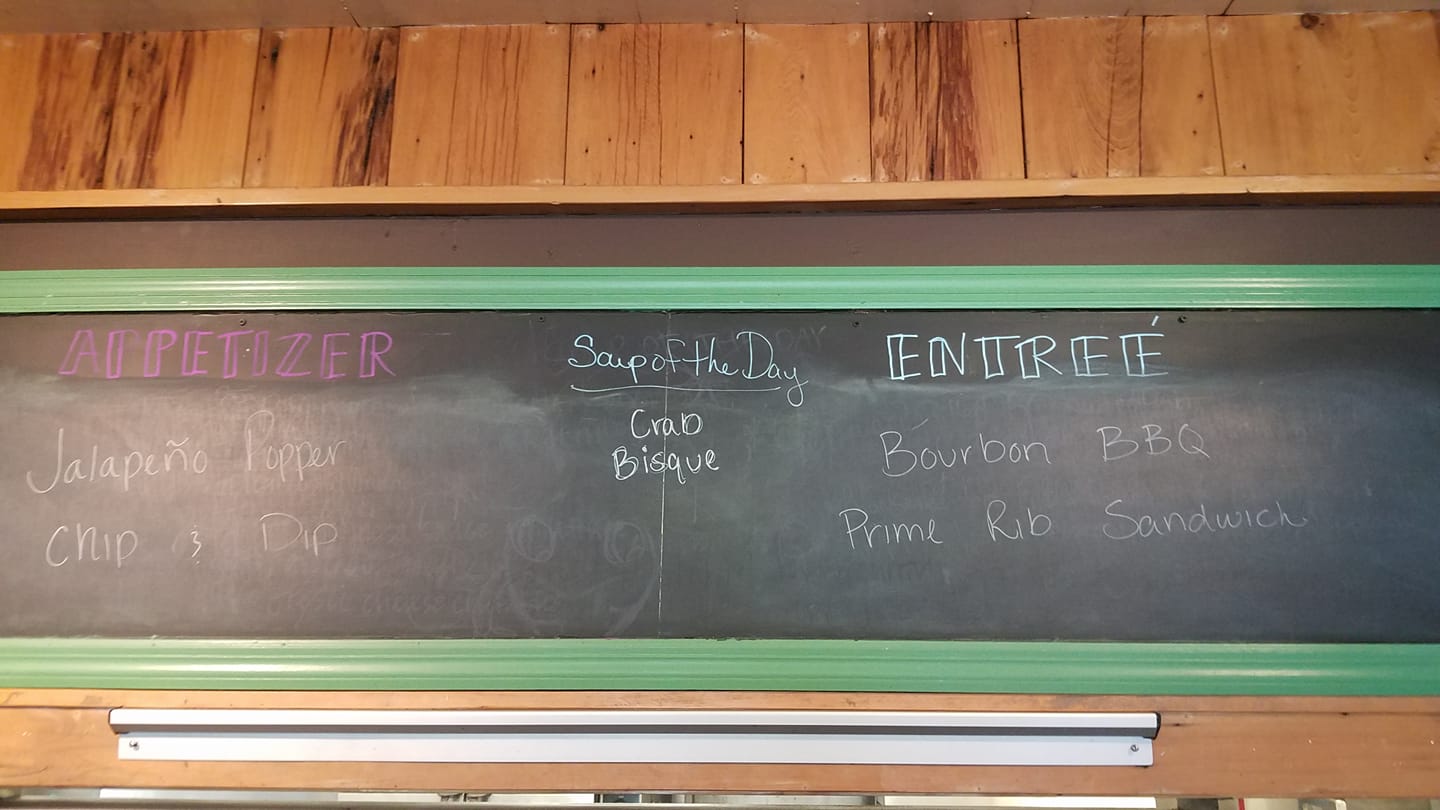 APPETIZER
Jalapeño Popper
Chip & Dip
Soup of the Day
Crab
Bisque
ENTREÉ
Bourbon BBQ
Prime Rib Sandwich